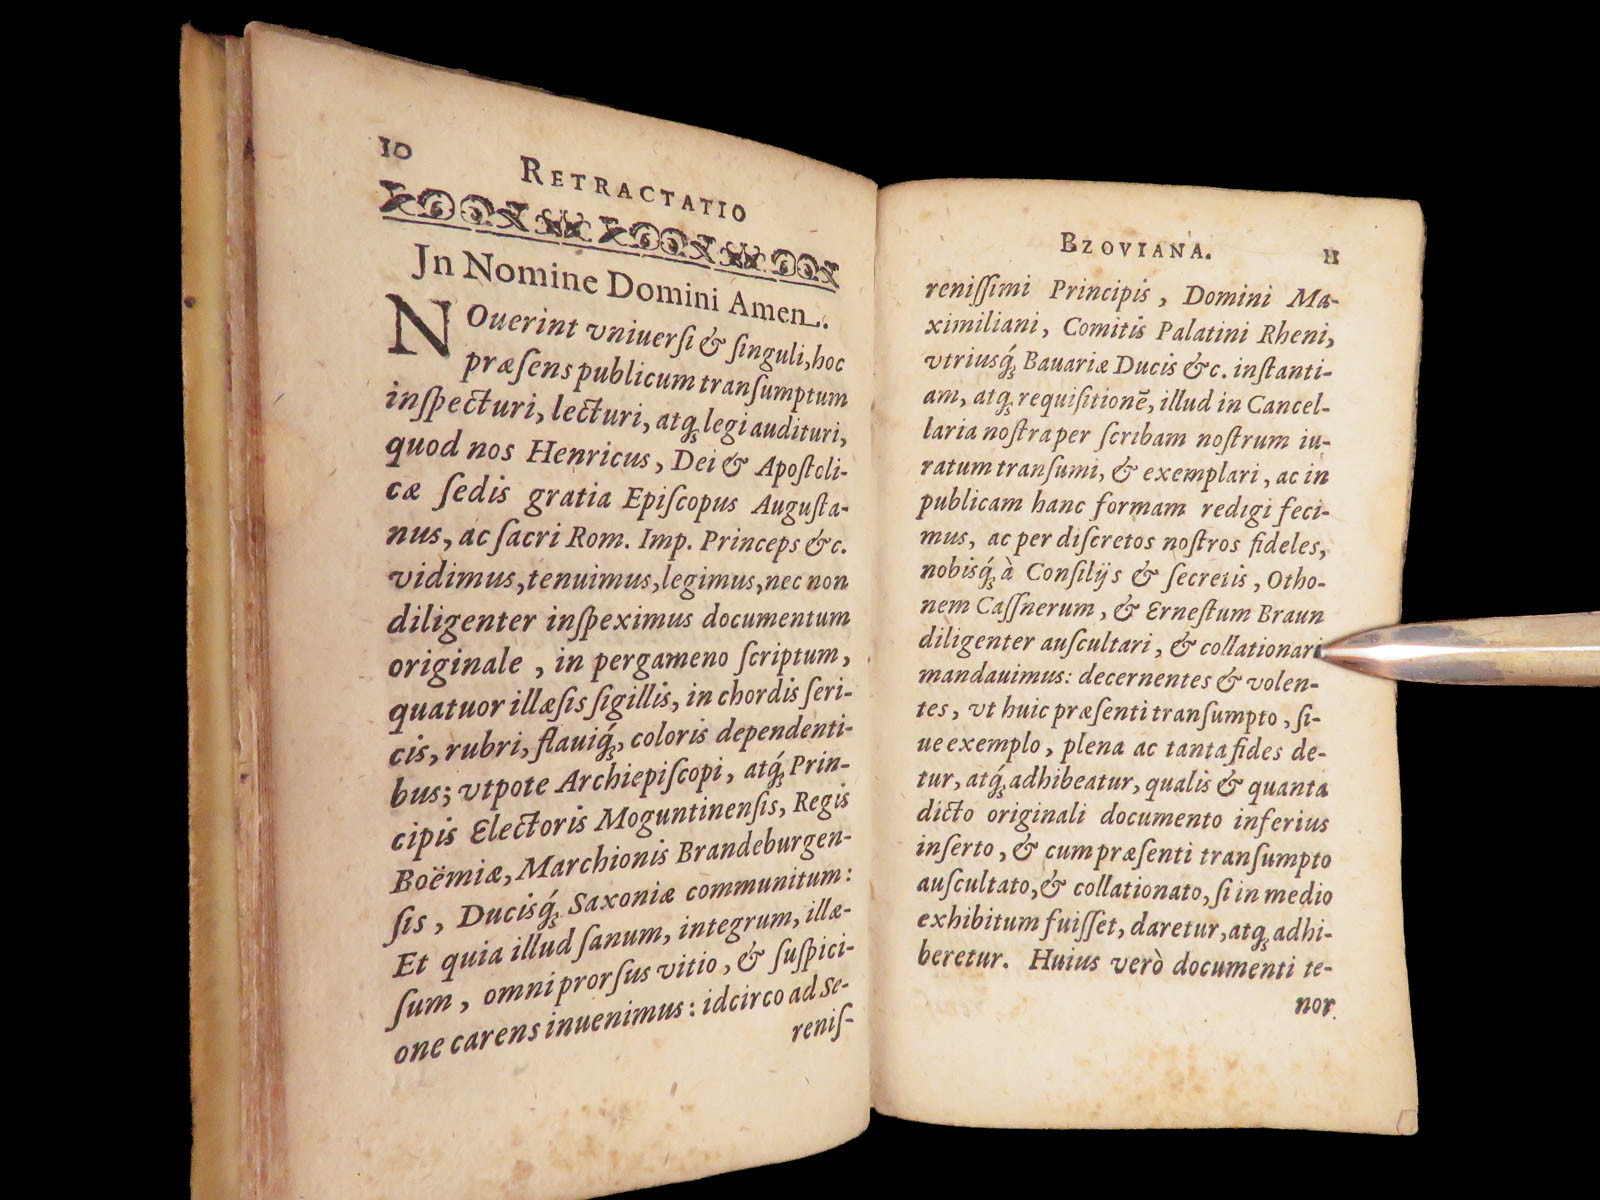 10
RETRACTATIO
Jn Nomine Domini Amen.
NOuerint vniuerſi & ſinguli, hoc
præſens publicum tranſumptum
inſpecturi, lecturi, atq́ꝫ legi audituri,
quod nos Henricus, Dei & Apoſtoli-
cæ ſedis gratia Epiſcopus Auguſta-
nus, ac ſacri Rom. Imp. Princeps &c.
vidimus, tenuimus, legimus, nec non
diligenter inſpeximus documentum
originale, in pergameno ſcriptum,
quatuor illæsis ſigillis, in chordis ſeri-
cis, rubri, flauiq́ꝫ, coloris dependenti-
bus; vtpote Archiepiſcopi, atq́ꝫ Prin-
cipis Electoris Moguntinenſis, Regis
Boëmiæ, Marchionis Brandeburgen-
ſis, Ducisq́ꝫ Saxoniæ communitum:
Et quia illud ſanum, integrum, illæ-
ſum, omni prorſus vitio, & ſuſpici-
one carens inuenimus: idcirco ad Se-
reniſ-
BZOVIANA.
11
reniſſimi Principis, Domini Ma-
ximiliani, Comitis Palatini Rheni,
vtriusq́ꝫ Bauariæ Ducis &c. inſtanti-
am, atq́ꝫ requiſitionē, illud in Cancel-
laria noſtra per ſcribam noſtrum iu-
ratum tranſumi, & exemplari, ac in
publicam hanc formam redigi feci-
mus, ac per diſcretos noſtros fideles,
nobisq́ꝫ à Conſilijs & ſecretis, Otho-
nem Caſſnerum, & Erneſtum Braun
diligenter auſcultari, & collationari
mandauimus: decernentes & volen-
tes, vt huic præſenti tranſumpto, ſi-
ue exemplo, plena ac tanta fides de-
tur, atq́ꝫ adhibeatur, qualis & quanta
dicto originali documento inferius
inſerto, & cum præſenti tranſumpto
auſcultato, & collationato, ſi in medio
exhibitum fuiſſet, daretur, atq́ꝫ adhi-
beretur. Huius verò documenti te-
nor